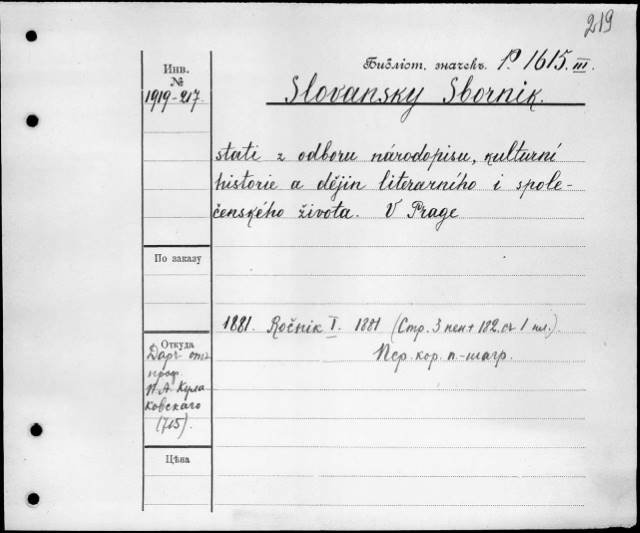 219
Библіот. значекъ. P. 1615. III.
Инв.
№
1919-217.
Slovansky Sbornik.
stati z odboru národopisu, kulturní
historie a dějin literarního i spole-
čenského života. V Prage
По заказу
1881. Ročnik I. 1881 (Стр. 3 нен + 182. съ 1 ил.).
Пер. кор. п.-шагр.
Откуда
Даръ отъ
проф.
П. А. Кула
ковскаго
(715).
Цѣна